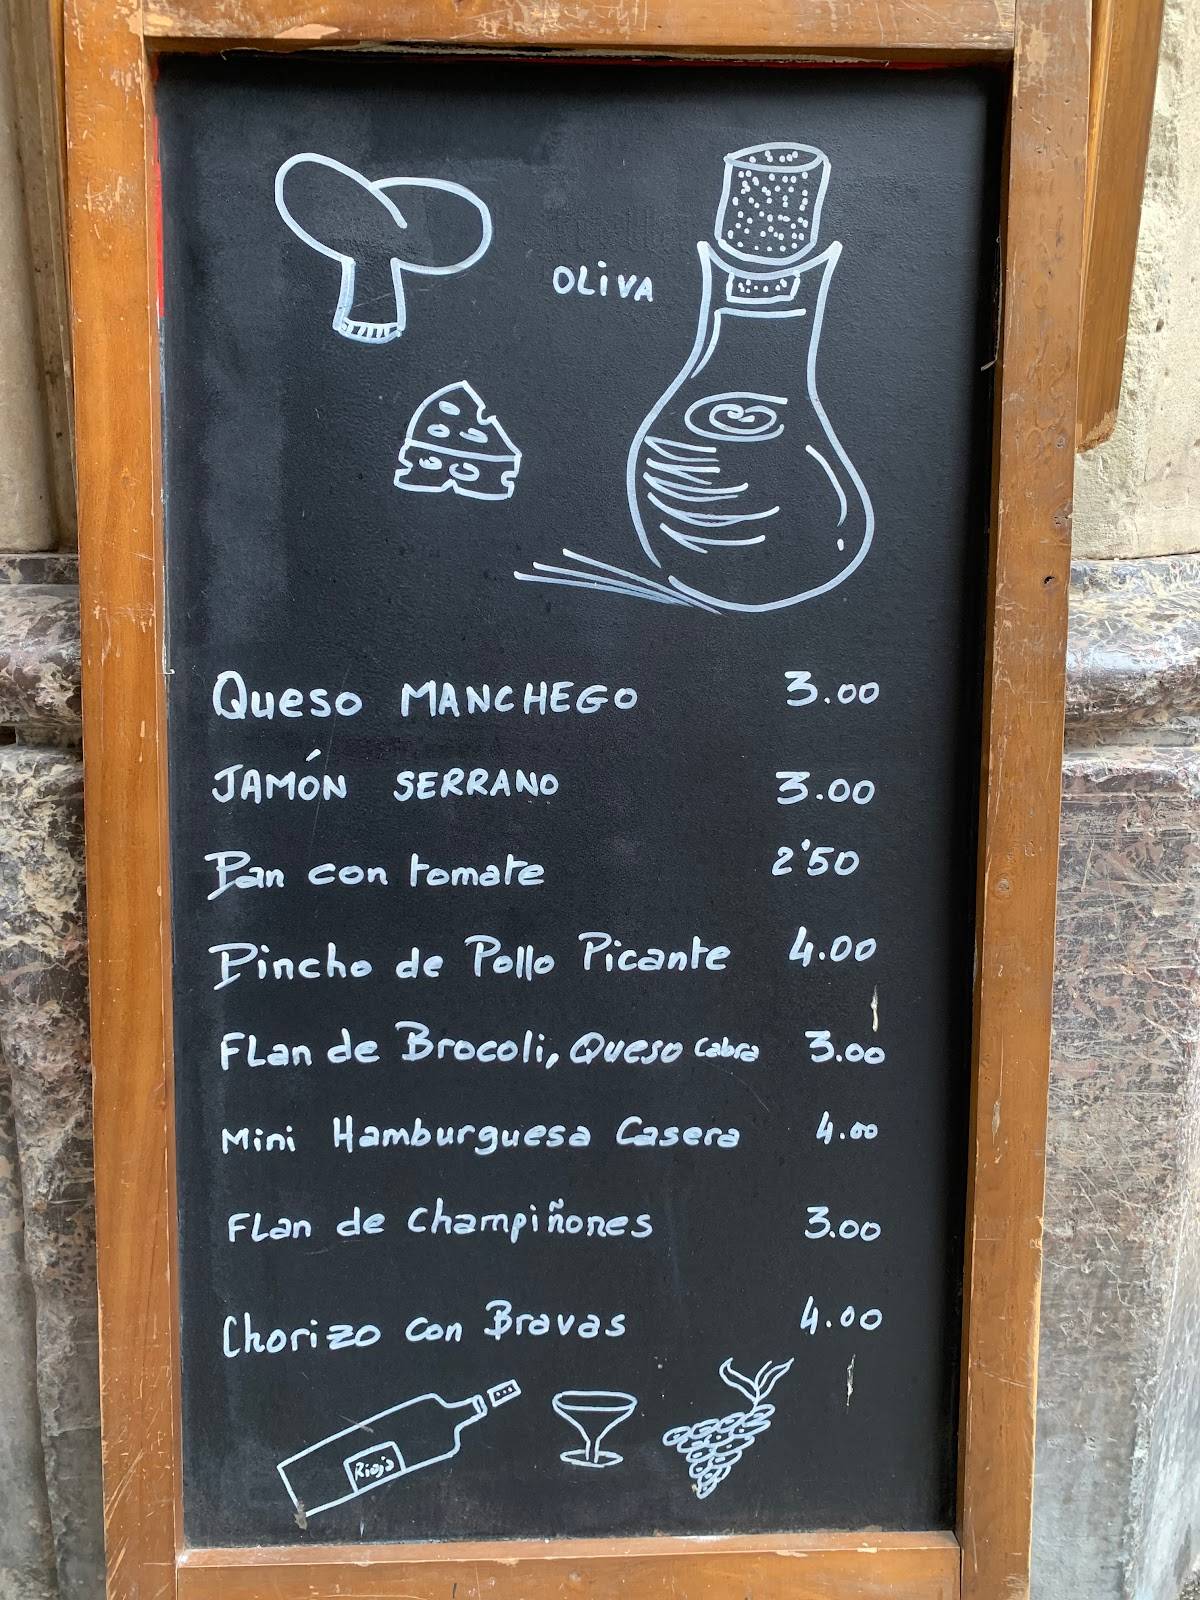 OLiVA
Queso MANCHEGO 3.00
JAMÓN SERRANO 3.00
Pan con tomate 2'50
Pincho de Pollo Picante 4.00
FLan de Brocoli, Queso Cabra 3.00
Mini Hamburguesa Casera 4.00
FLan de Champiñones 3.00
Chorizo con Bravas 4.00
Rioja